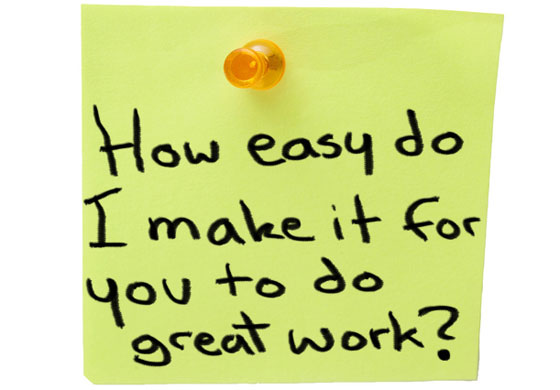 How easy do
I make it for
you to do
great work?